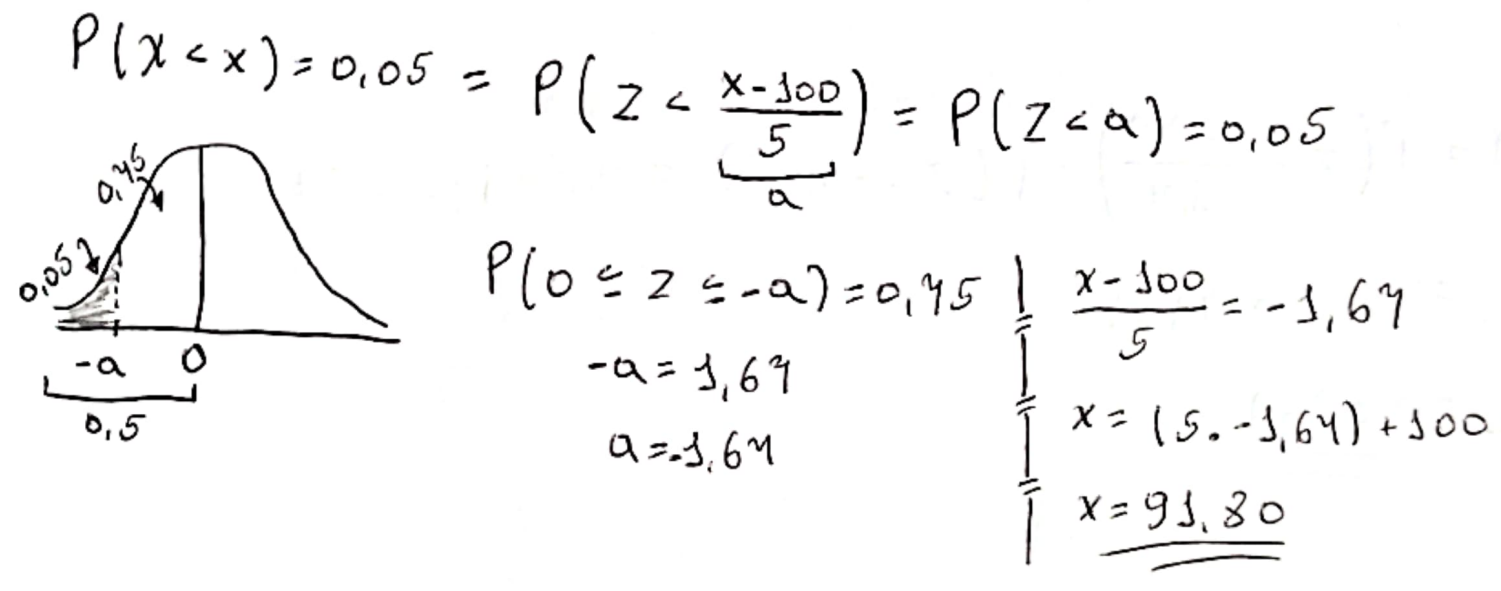 P(X < x) = 0,05 = P(Z < \frac{x-100}{5}) = P(Z < a) = 0,05
a
0,45
0,05
-a 0
0,5
P(0 ≤ Z ≤ -a) = 0,45
-a = 1,64
a = -1,64
\frac{x-100}{5} = -1,64
x = (5. -1,64) + 100
x = 91,80